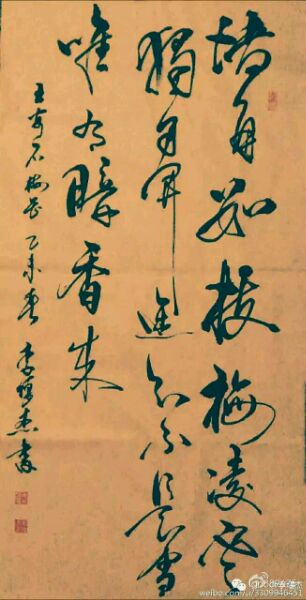 墙角数枝梅凌寒
独自开遥知不是雪
唯有暗香来
王安石梅花 乙未春 李杰书
weibo.com/u/3309940451